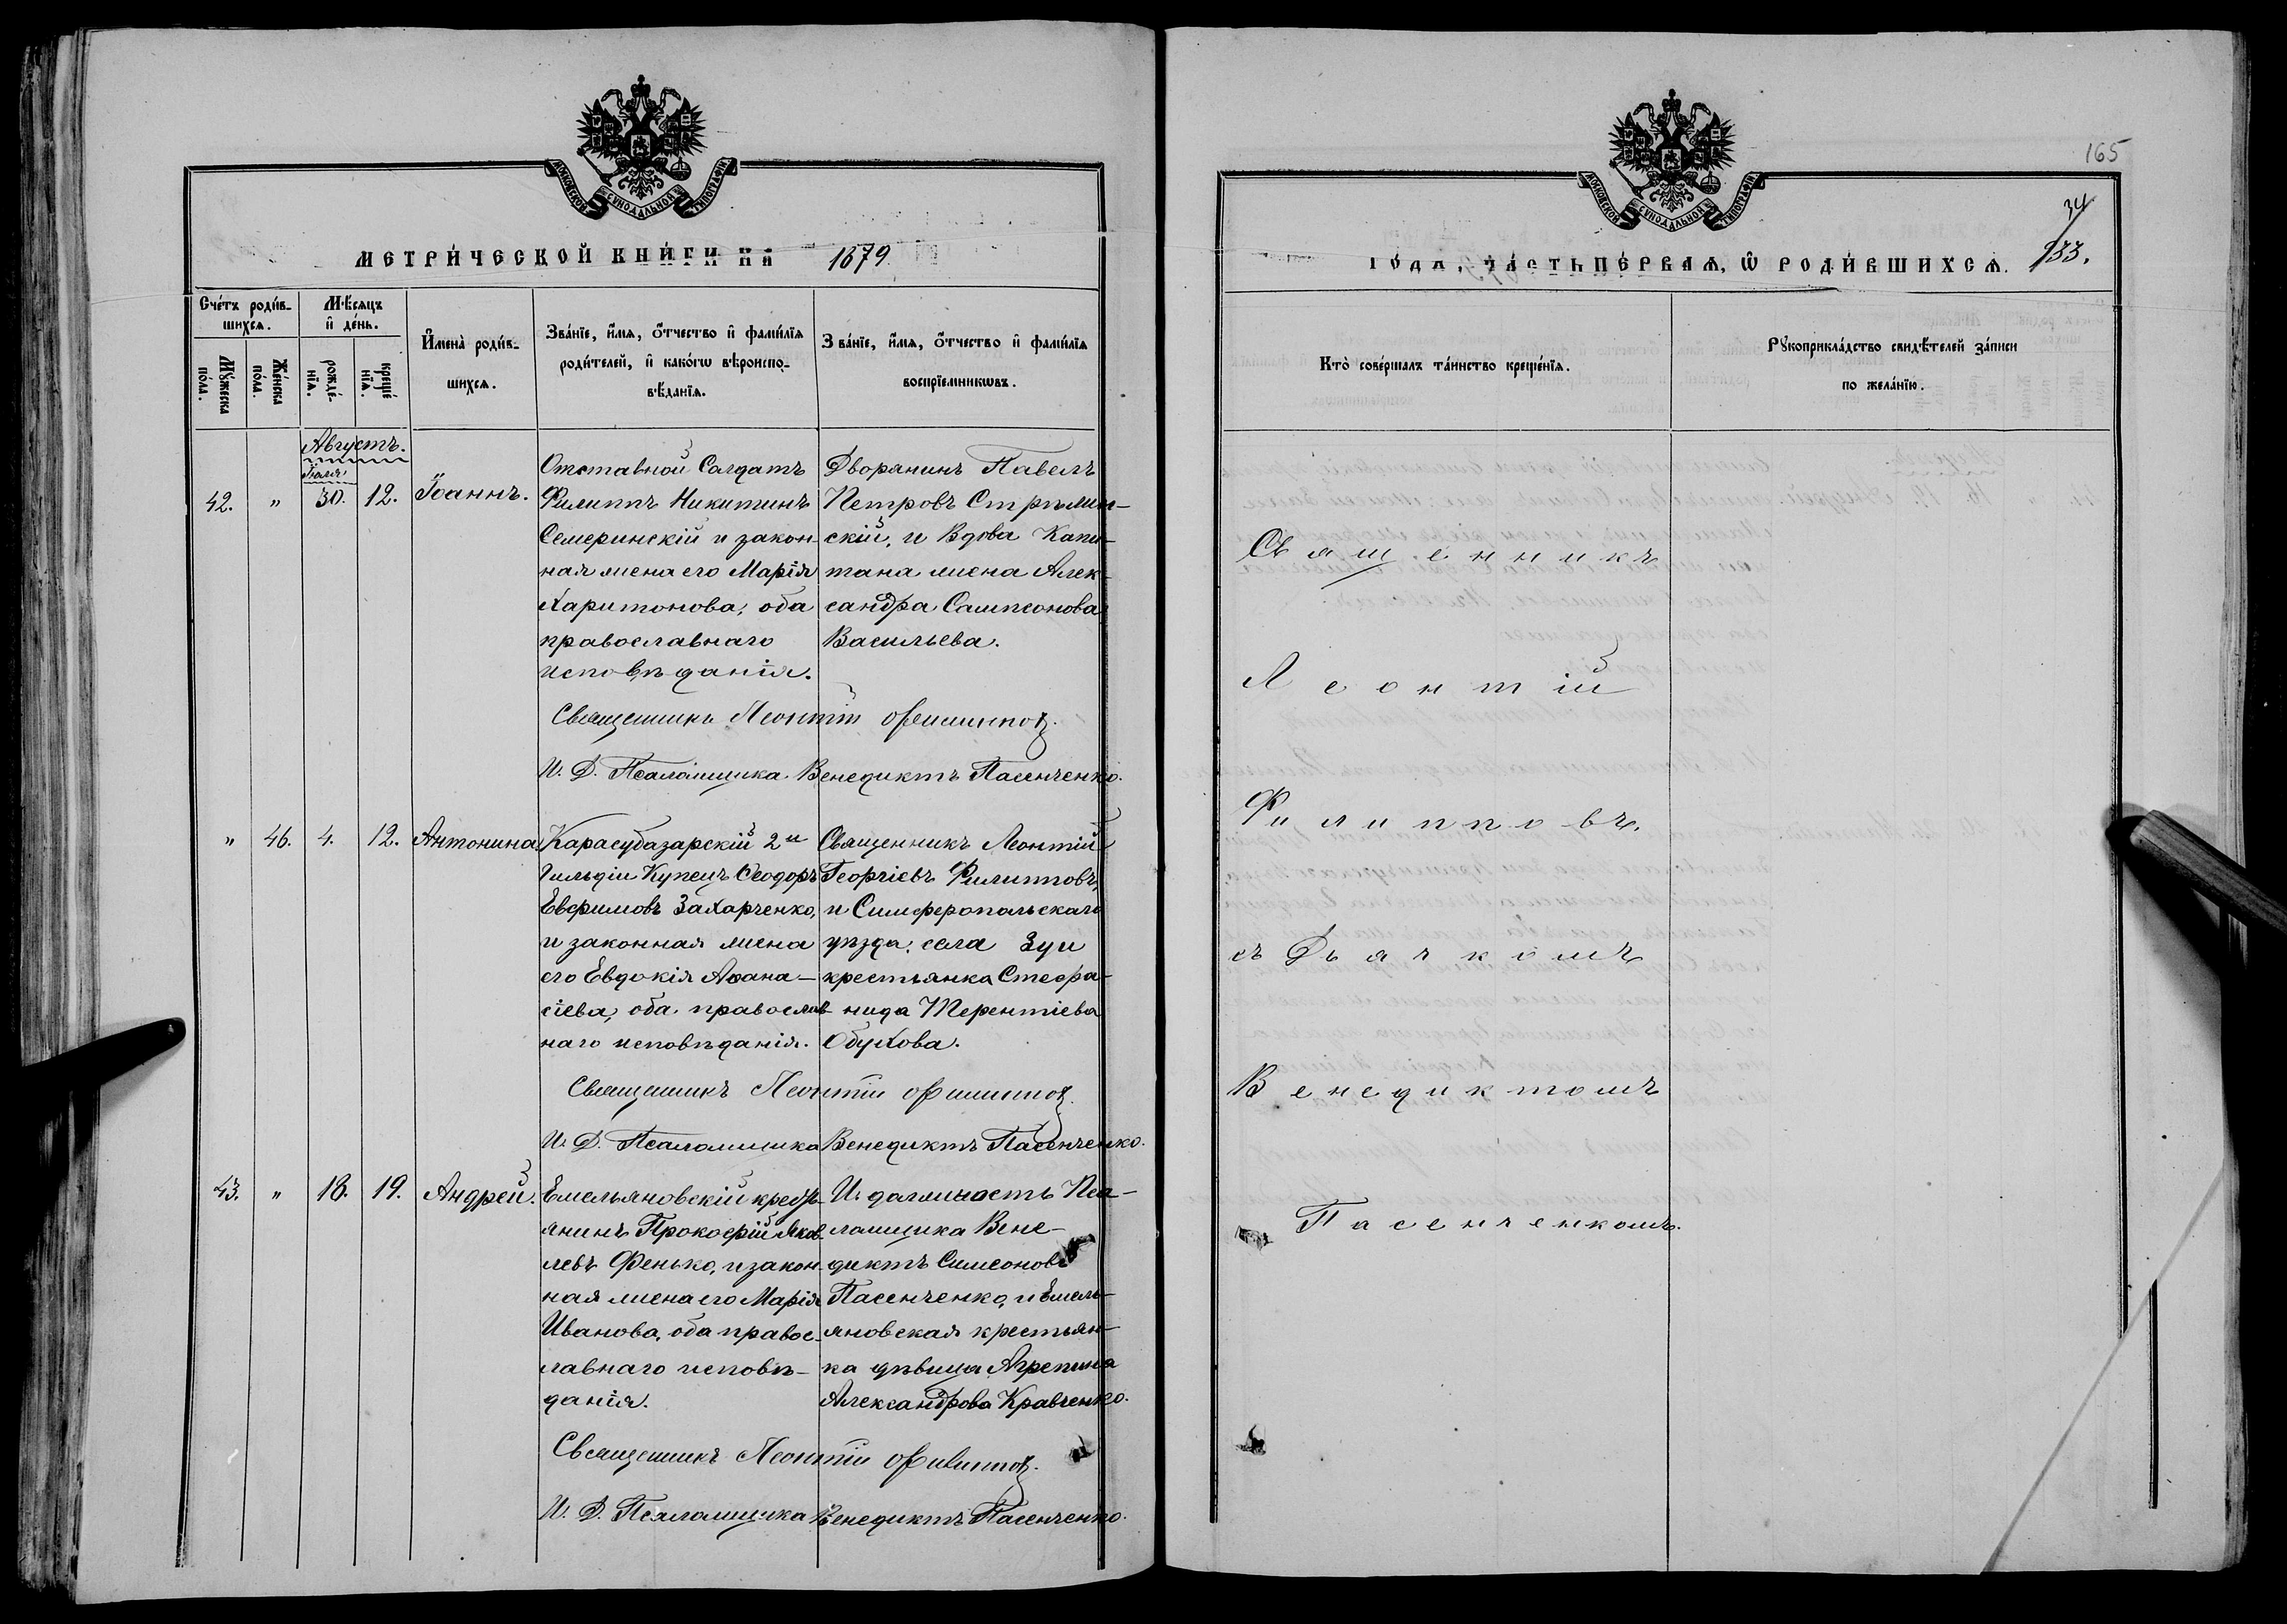 МОСКОВСКОЙ СѴНОДАЛЬНОЙ ТИПОГРАФІИ
МЕТРИ́ЧЕСКОЙ КНИ́ГИ НА 1879
Сче́тъ роди́в-
шихсѧ.
Мѣ́сѧцъ
и҆ де́нь.
Мꙋ́жеска
по́ла.
Же́нска
по́ла.
рожде́-
нїѧ.
креще́
нїѧ.
И҆мена̀ роди́в-
шихсѧ.
Зва́нїе, и҆́мѧ, ѻ҆́тчество и҆ фами́лїѧ
роди́телей, и҆ како́гѡ вѣроиспо-
вѣ́данїѧ.
Зва́нїе, и҆́мѧ, ѻ҆́тчество и҆ фами́лїѧ
воспрїе́мникѡвъ.
Августъ.
Іюля
42. " 30. 12. Іоаннъ.
Отставной Солдатъ
Филиппъ Никитинъ
Семеринскій и закон-
ная жена его Марія
Харитонова, оба
православнаго
исповѣданія.
Дворянинъ Павелъ
Петровъ Стрѣмин-
скій, и Вдова Капи-
тана жена Алек-
сандра Сампсонова
Васильева.
Священникъ Леонтій Филипповъ.
И. Д. Псаломщика Венедиктъ Пасенченко.
" 46. 4. 12. Антонина
Карасубазарскій 2й
Гильдіи Купецъ Ѳеодоръ
Евфимовъ Захарченко,
и законная жена
его Евдокія Аѳана-
сіева, оба православ-
наго исповѣданія.
Священникъ Леонтій
Георгіевъ Филипповъ,
и Симферопольскаго
уѣзда, села Зуи
крестьянка Стефа-
нида Терентіева
Обухова.
Священникъ Леонтій Филипповъ.
И. Д. Псаломщика Венедиктъ Пасенченко.
43. " 18. 19. Андрей.
Емельяновскій крестьь-
янинъ Прокофій Яков-
левъ Фенько, и закон-
ная жена его Марія
Иванова, оба правос-
лавнаго исповѣ-
данія.
И. должность Пса-
ломщика Вене-
диктъ Симеоновъ
Пасенченко, и Емель-
яновская крестьян-
ка дѣвица Агрепина
Александрова Кравченко.
Священникъ Леонтій Филипповъ.
И. Д. Псаломщика Венедиктъ Пасенченко.
165
МОСКОВСКОЙ СѴНОДАЛЬНОЙ ТИПОГРАФІИ
34
133.
ГО́ДА, ЧА́СТЬ ПЕ́РВАѦ, Ѡ҆ РОДИ́ВШИХСѦ.
Кто̀ соверша́лъ та́инство креще́нїѧ.
Рꙋкоприкла́дство свидѣ́телей за́писи
по жела́нїю.
Священникъ
Леонтій
Филипповъ,
съ Дьячкомъ
Венедиктомъ
Пасенченкомъ.